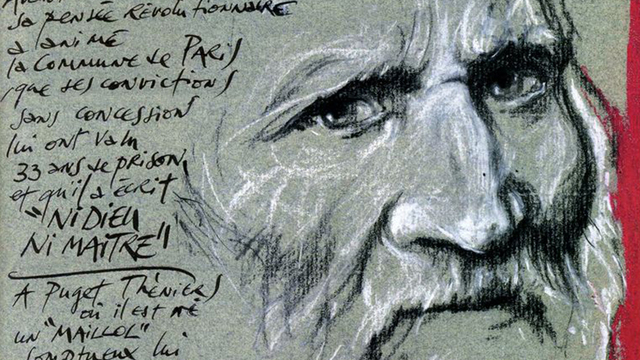 sa pensée révolutionnaire
a animé
la Commune de PARIS
que ses convictions
sans concession
lui ont valu
33 ans de prison
et qu'il a écrit
"NI DIEU
NI MAITRE"
A Puget Théniers
où il est né
un "MAILLOL"
somptueux lui